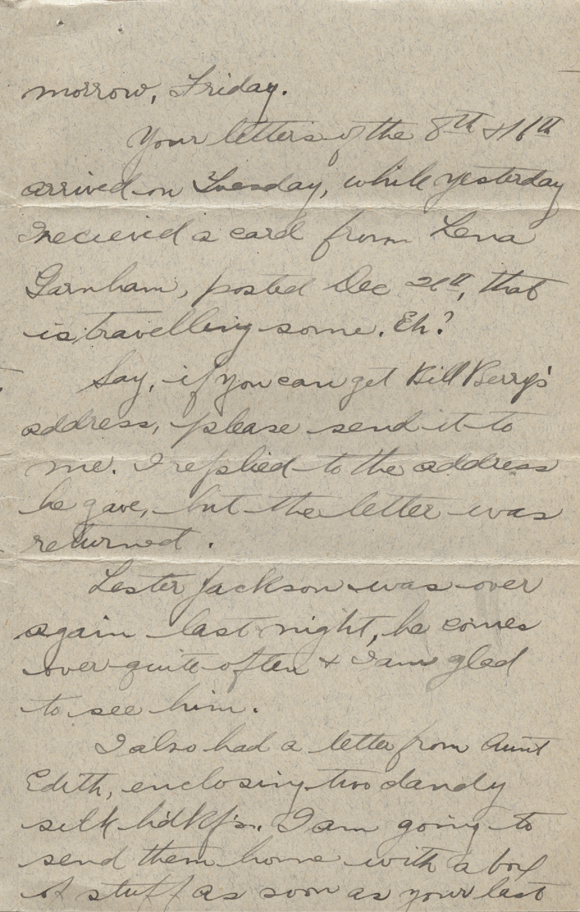 morrow, Friday.
Your letters of the 8th & 16th
arrived on Tuesday, while yesterday
I recieved a card from Lena
Garnham, posted Dec 21st, that
is travelling some. Eh?
Say, if you can get Bill Berry's
address, please send it to
me. I replied to the address
he gave, but the letter was
returned.
Lester Jackson was over
again last night, he comes
over quite often & I am glad
to see him.
I also had a letter from Aunt
Edith, enclosing two dandy
silk hdkfs. I am going to
send them home with a box
of stuff as soon as your last